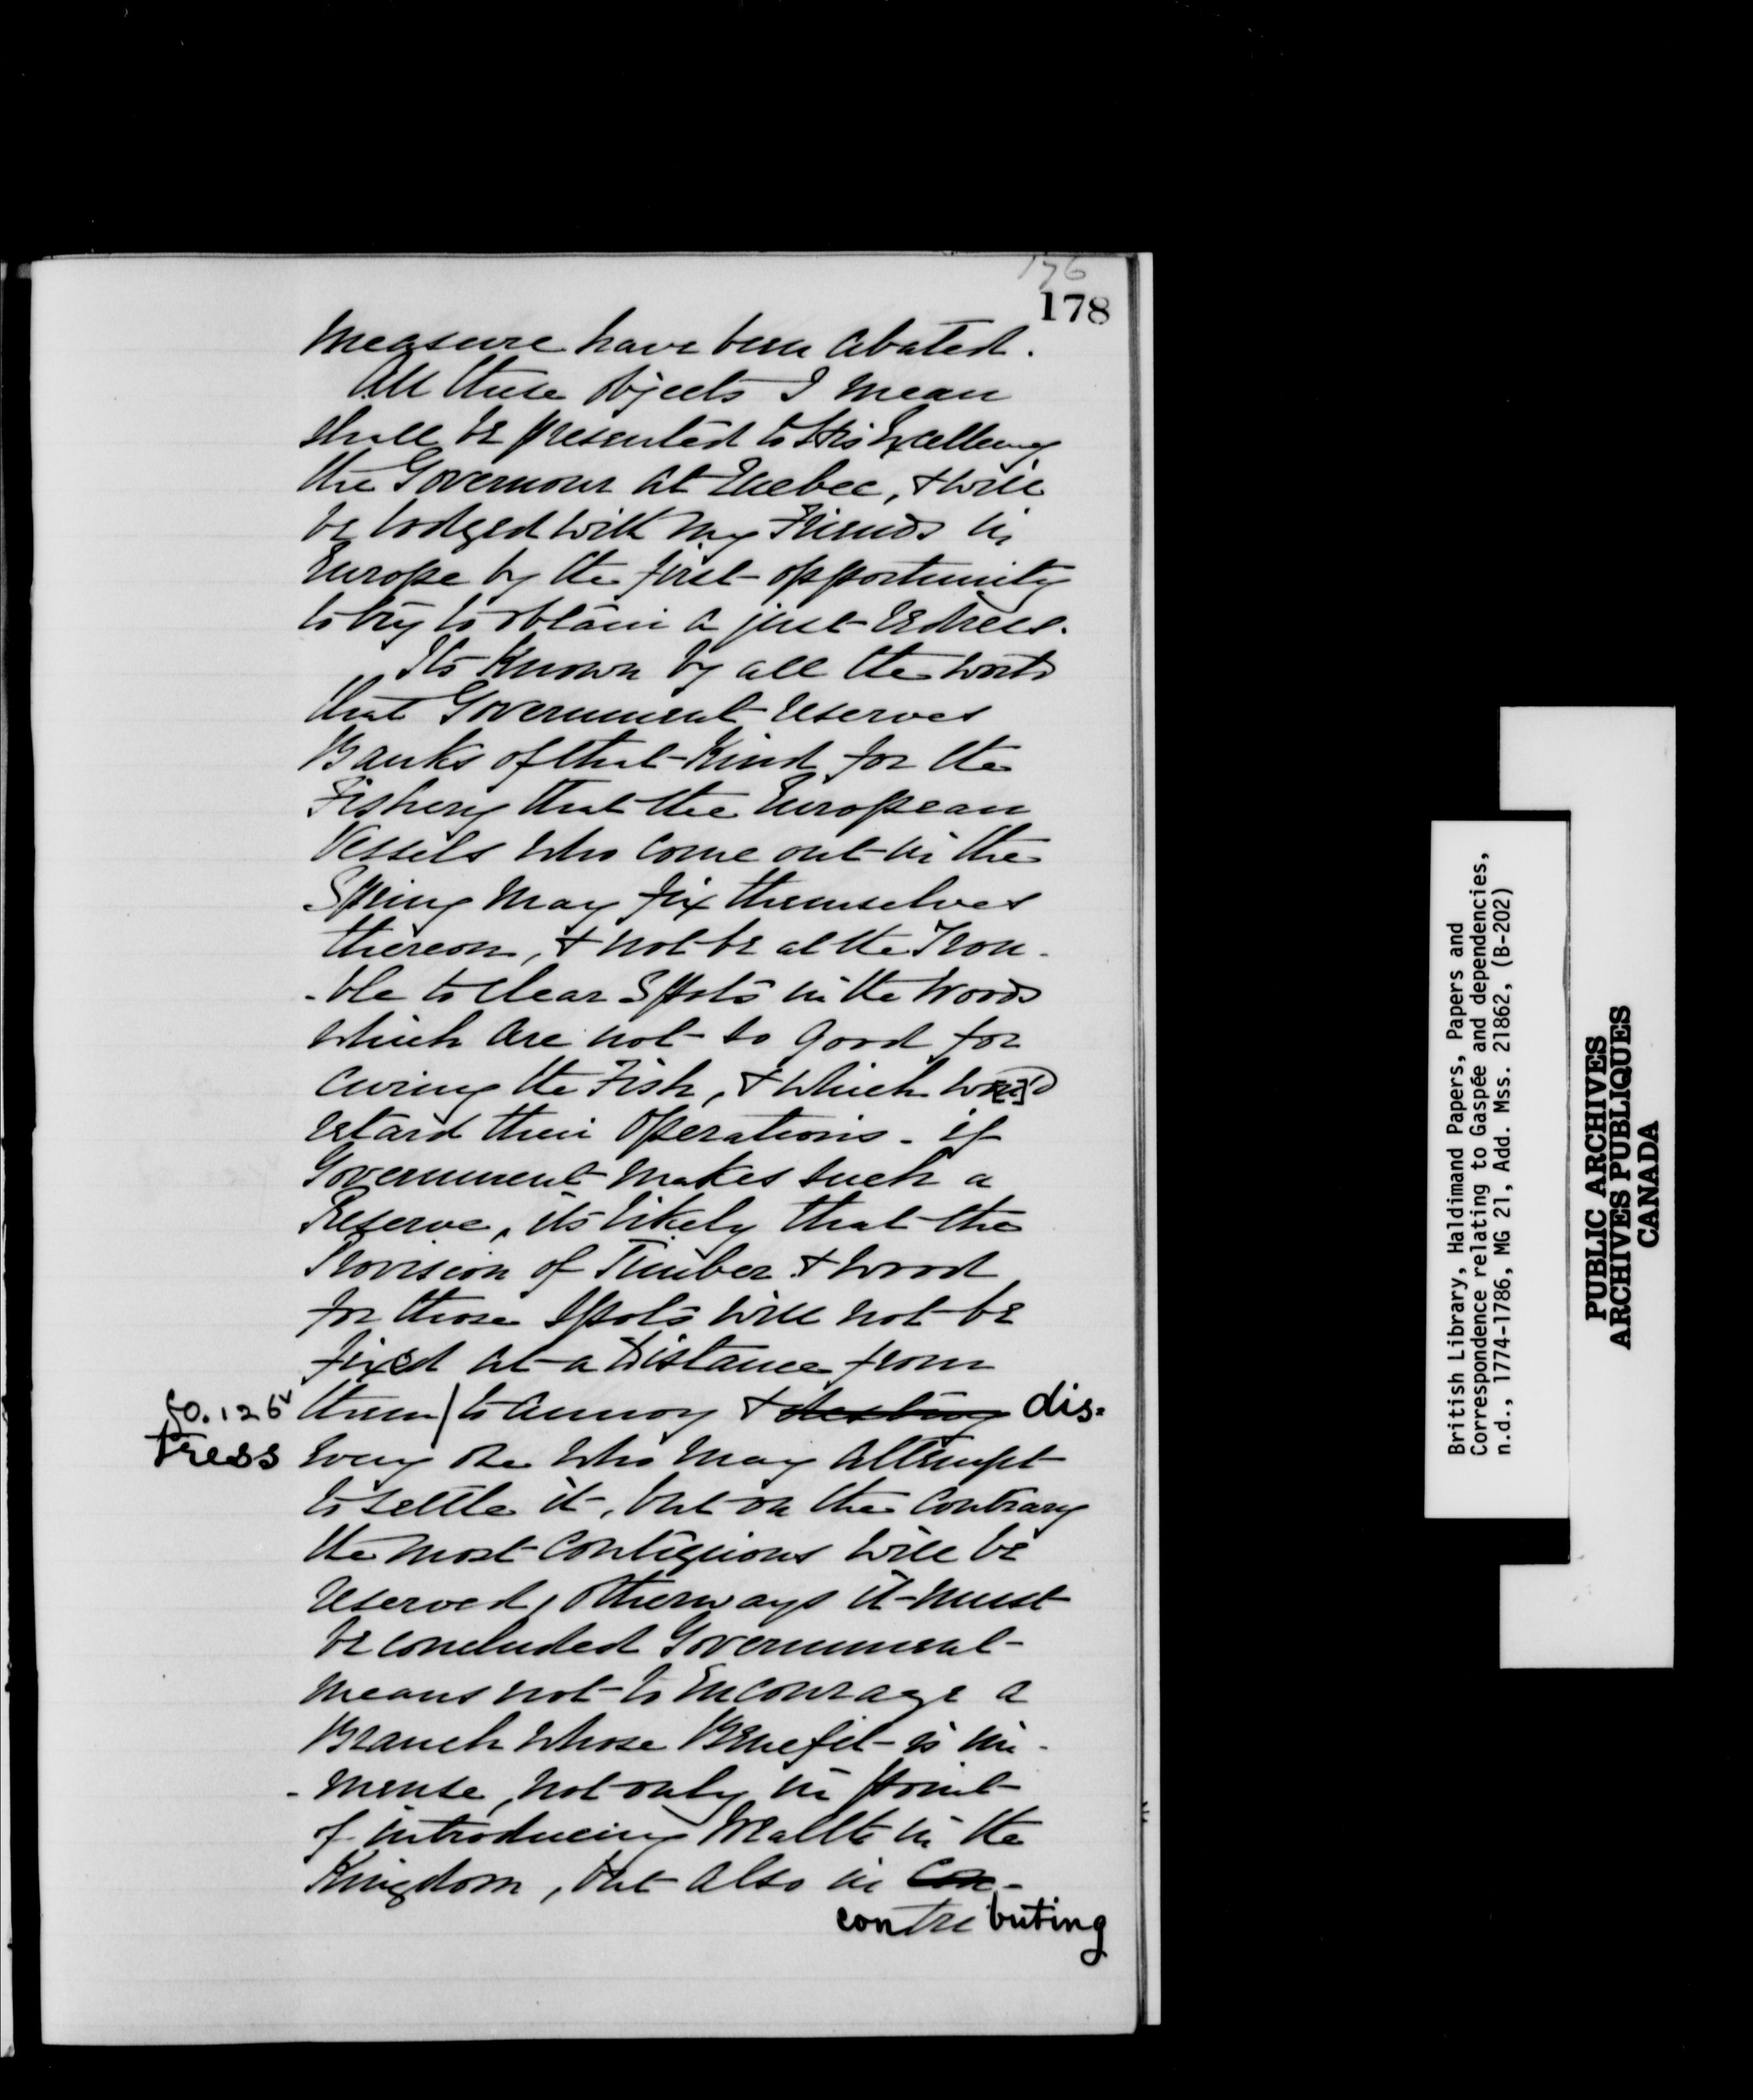 176
178
measure have been abated.
All these objects I mean
shall be presented to His Excellency
the Governour at Quebec, & will
be lodged with my Friends in
Europe by the first opportunity
to try to obtain a just redress.
Its Known by all the world
that Government reserves
Banks of that Kind for the
Fishery that the European
Vessels who come out in the
Spring may fix themselves
thereon, & not be at the Trou-
-ble to clear Spots in the Woods
which are not so good for
curing the Fish, & which would
retard their Operations. if
Government makes such a
Reserve, its likely that the
Provision of Timber & wood
for those Spots will not be
fixed at a Distance from
fo. 126v them / to annoy & destroy dis=
tress every one who may attempt
to settle it, but on the Contrary
the most contiguous will be
reserved, otherways it must
be concluded Government
means not to encourage a
Branch whose Benefit is im-
-mense, not only in point
of introducing Wealth in the
Kingdom, but also in con-
contributing
British Library, Haldimand Papers, Papers and
Correspondence relating to Gaspée and dependencies,
n.d., 1774-1786, MG 21, Add. Mss. 21862, (B-202)
PUBLIC ARCHIVES
ARCHIVES PUBLIQUES
CANADA